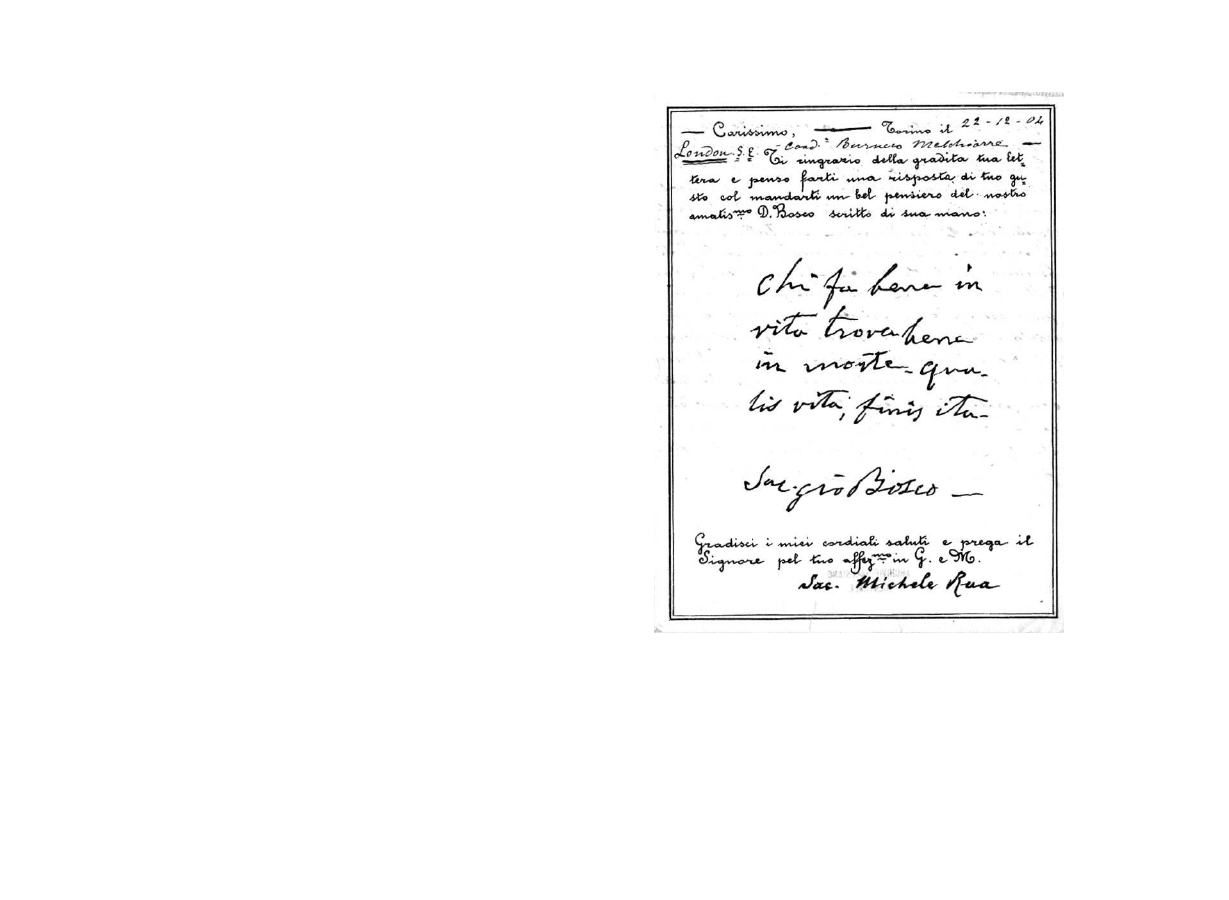 — Carissimo, — Torino il 22-12-04
London S.E. Coad.e Burneco Melchiorre —
Ti ringrazio della gradita tua let-
tera e penso farti una risposta di tuo gu-
sto col mandarti un bel pensiero del nostro
amatis.mo D. Bosco scritto di sua mano:
Chi fa bene in
vita trova bene
in morte - qua-
lis vita, finis ita -
Sac. gio Bosco —
Gradisci i miei cordiali saluti e prega il
Signore pel tuo affez.mo in G. e M.
Sac. Michele Rua